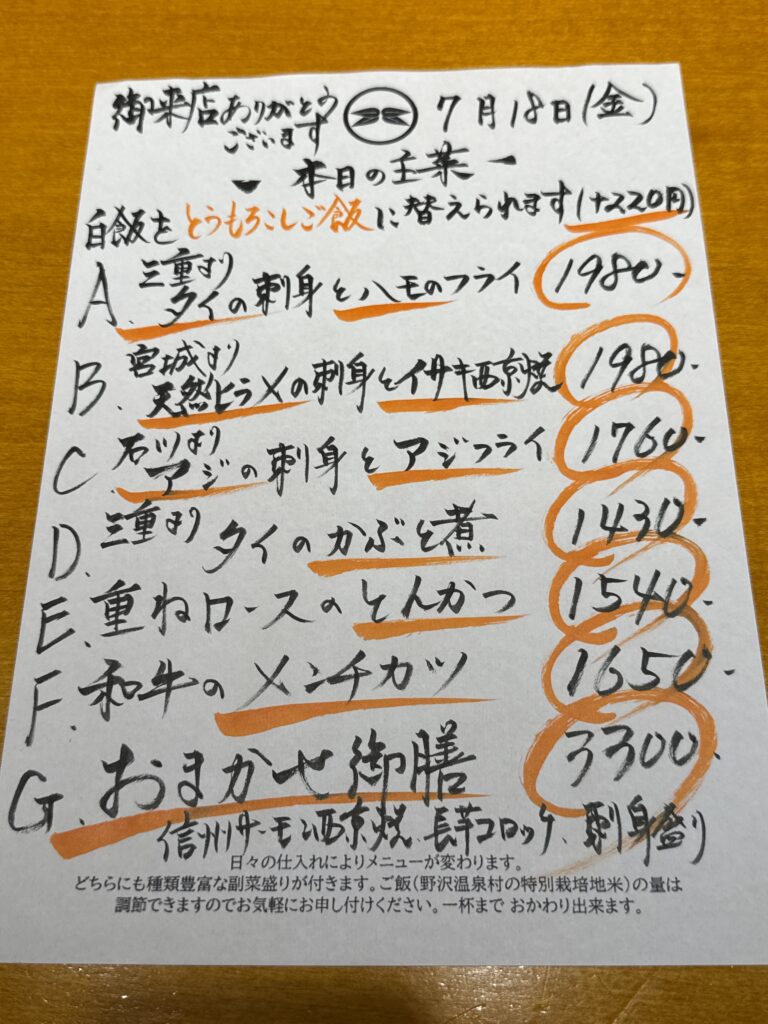 御来店ありがとう
ございます
7月18日(金)
本日の主菜
白飯をとうもろこしご飯に替えられます(+220円)
A. 三重より
タイの刺身とハモのフライ 1980-
B. 宮城より
天然ヒラメの刺身とイサキ西京焼 1980-
C. 石川より
アジの刺身とアジフライ 1760-
D. 三重より タイのかぶと煮 1430-
E. 重ねロースのとんかつ 1540-
F. 和牛のメンチカツ 1650-
G. おまかせ御膳 3300-
信州サーモン西京焼、長芋コロッケ、刺身盛り
日々の仕入れによりメニューが変わります。
どちらにも種類豊富な副菜盛りが付きます。ご飯(野沢温泉村の特別栽培地米)の量は
調節できますのでお気軽にお申し付けください。一杯まで おかわり出来ます。